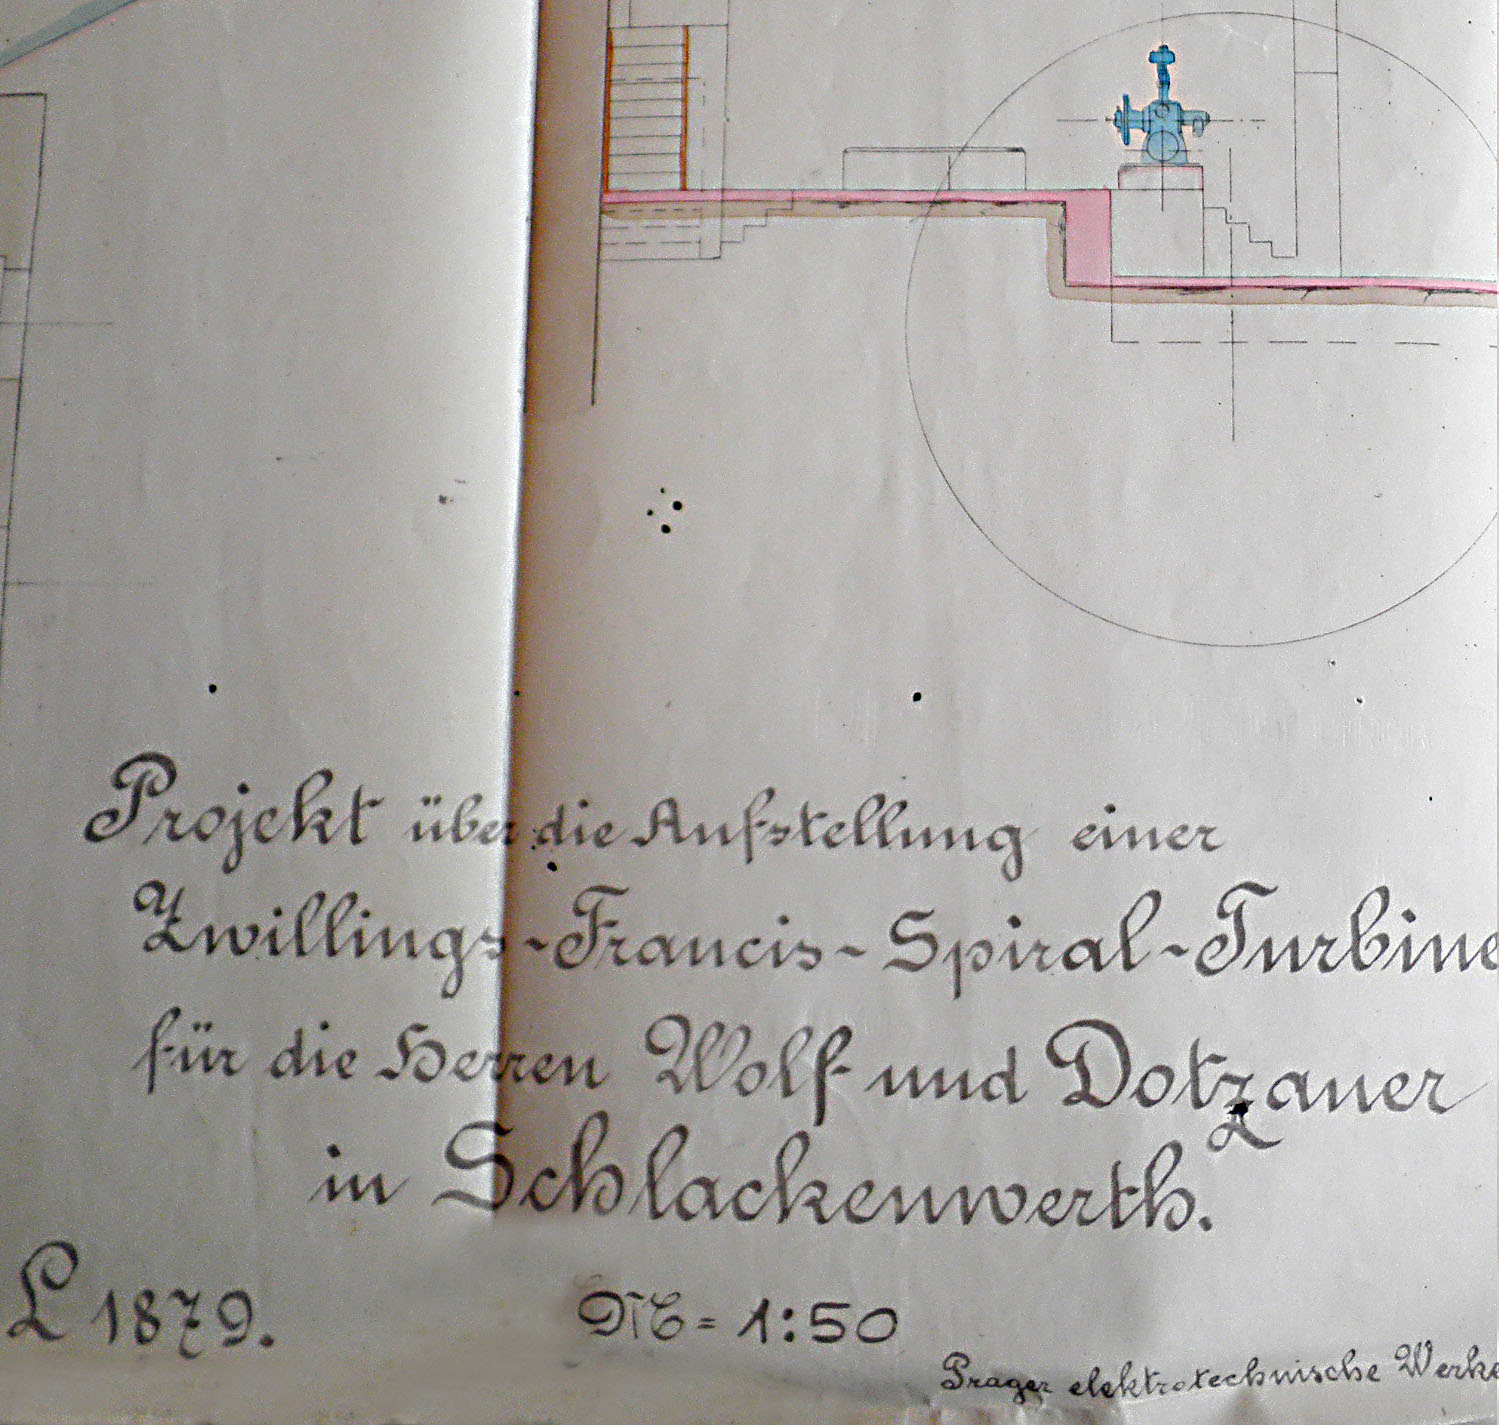 Projekt über die Aufstellung einer
Zwillings-Francis-Spiral-Turbine
für die Herren Wolf und Dotzauer
in Schlackenwerth.
L 1879.
M = 1:50
Prager elektrotechnische Werke